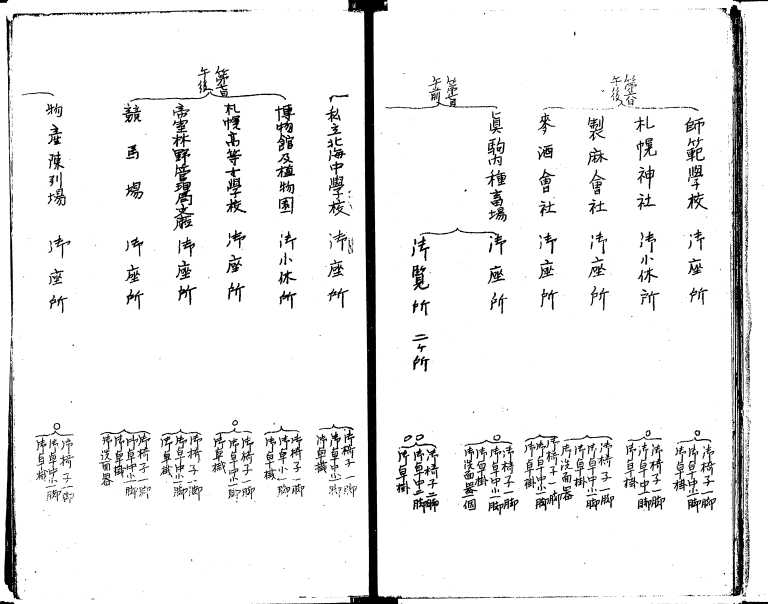 師範學校 御座所
御椅子一脚
御卓中小一脚
御卓掛
午後
札幌神社 御小休所
御椅子一脚
御卓中一脚
御卓掛
製麻會社 御座所
御椅子一脚
御卓中小一脚
御卓掛
御洗面器
麥酒會社 御座所
御椅子一脚
御卓中小一脚
御卓掛
午前
眞駒内種畜場
御座所
御椅子一脚
御卓中小一脚
御卓掛
御洗面器一個
御覽所 二ケ所
御椅子二脚
御卓中二脚
御卓掛
私立北海中學校 御座所
御椅子一脚
御卓中小一脚
御卓掛
午後
博物館及植物園 御小休所
御椅子一脚
御卓小一脚
御卓掛
札幌高等女學校 御座所
御椅子一脚
御卓中小一脚
御卓掛
帝室林野管理局支廳 御座所
御椅子一脚
御卓中小一脚
御卓掛
競馬場 御座所
御椅子一脚
御卓中小一脚
御卓掛
御洗面器
物産陳列場 御座所
御椅子一脚
御卓中小一脚
御卓掛